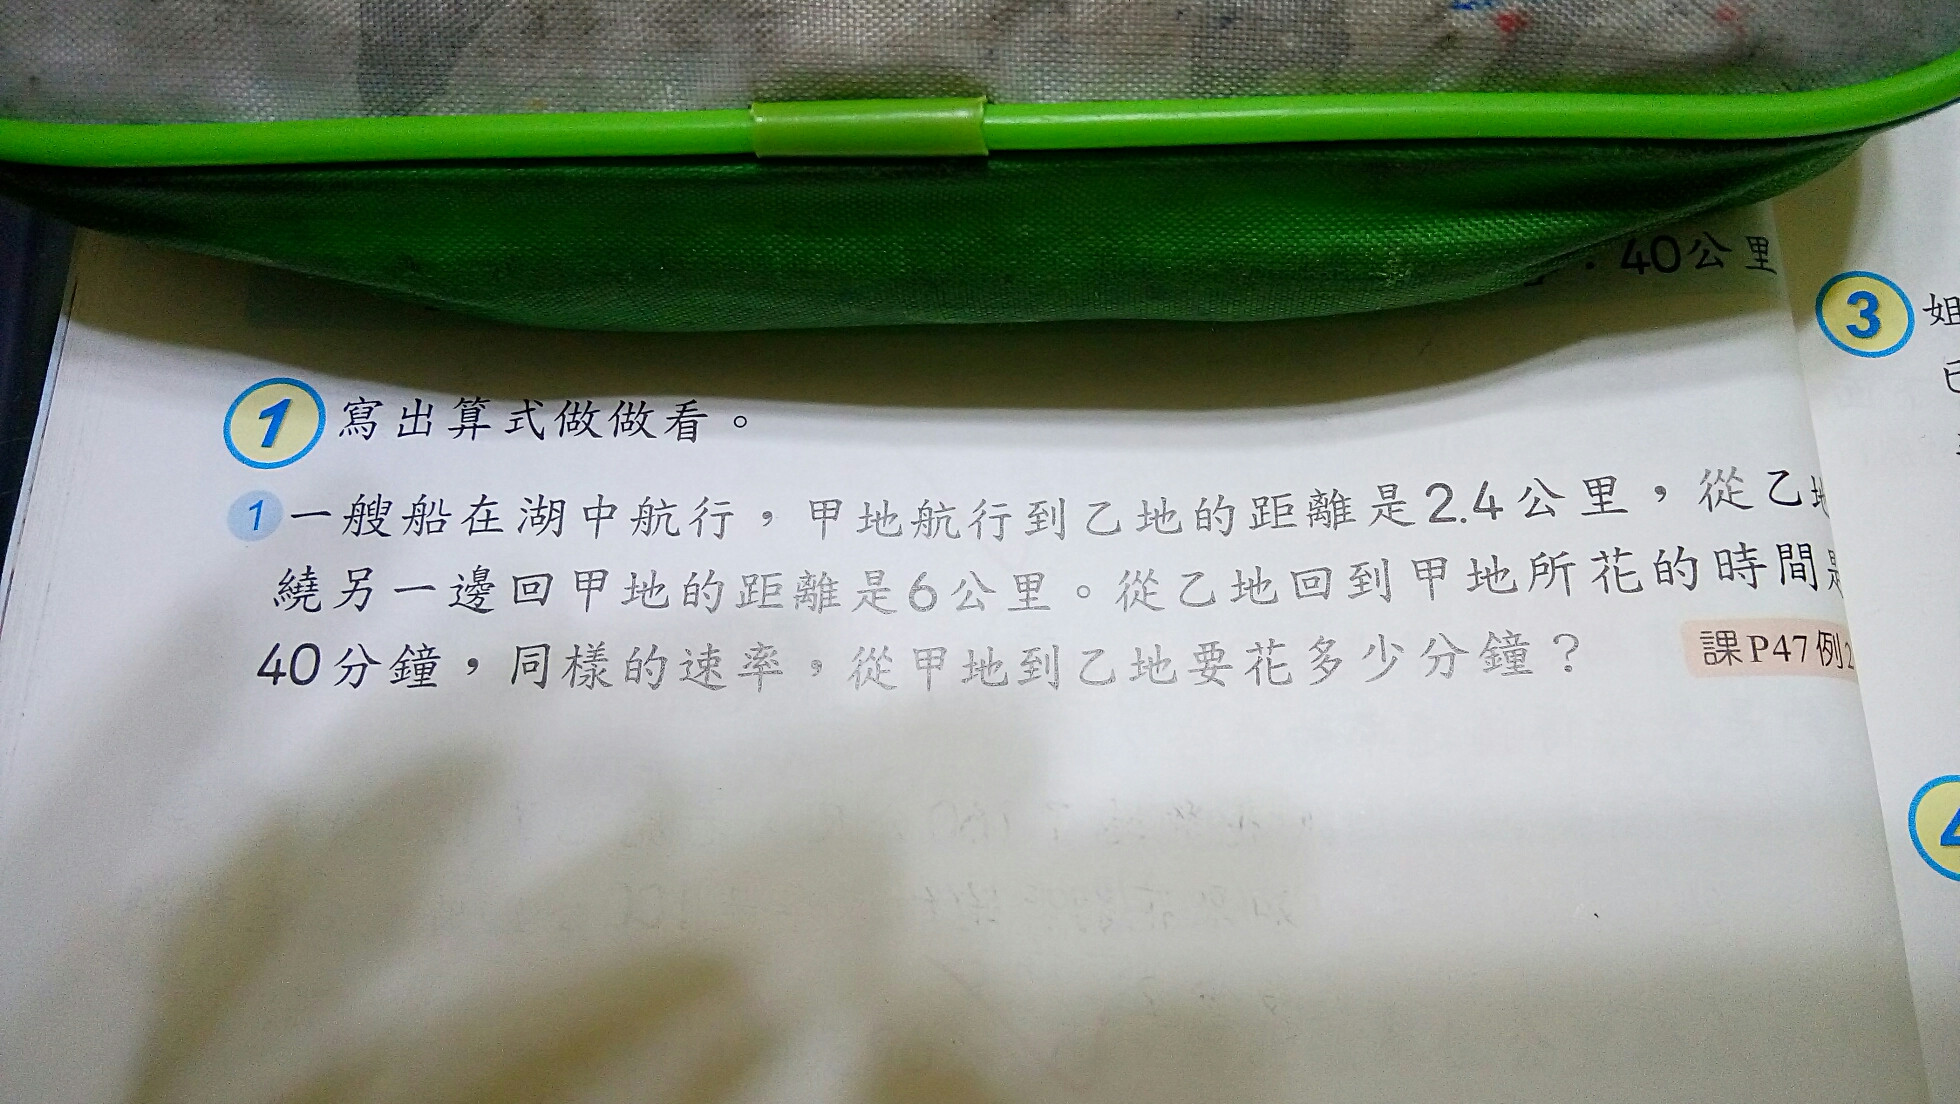 40公里
1 寫出算式做做看。
1 一艘船在湖中航行，甲地航行到乙地的距離是2.4公里，從乙地
繞另一邊回甲地的距離是6公里。從乙地回到甲地所花的時間是
40分鐘，同樣的速率，從甲地到乙地要花多少分鐘？
課P47例2
3 姐